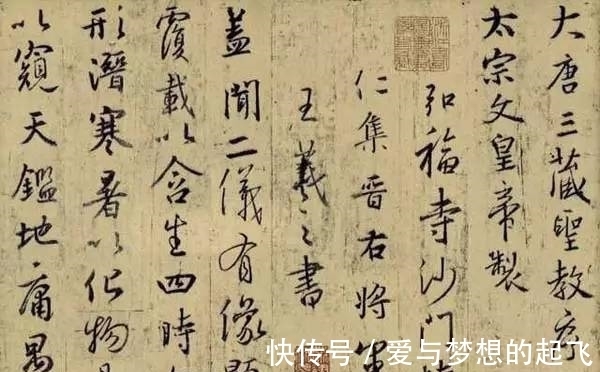 大唐三藏聖教序
太宗文皇帝製
弘福寺沙門
仁集晉右將軍
王羲之書
蓋聞二儀有像顯
覆載以含生四時
形潛寒暑以化物
以窺天鑑地庸愚
快传号 / 爱与梦想的起飞